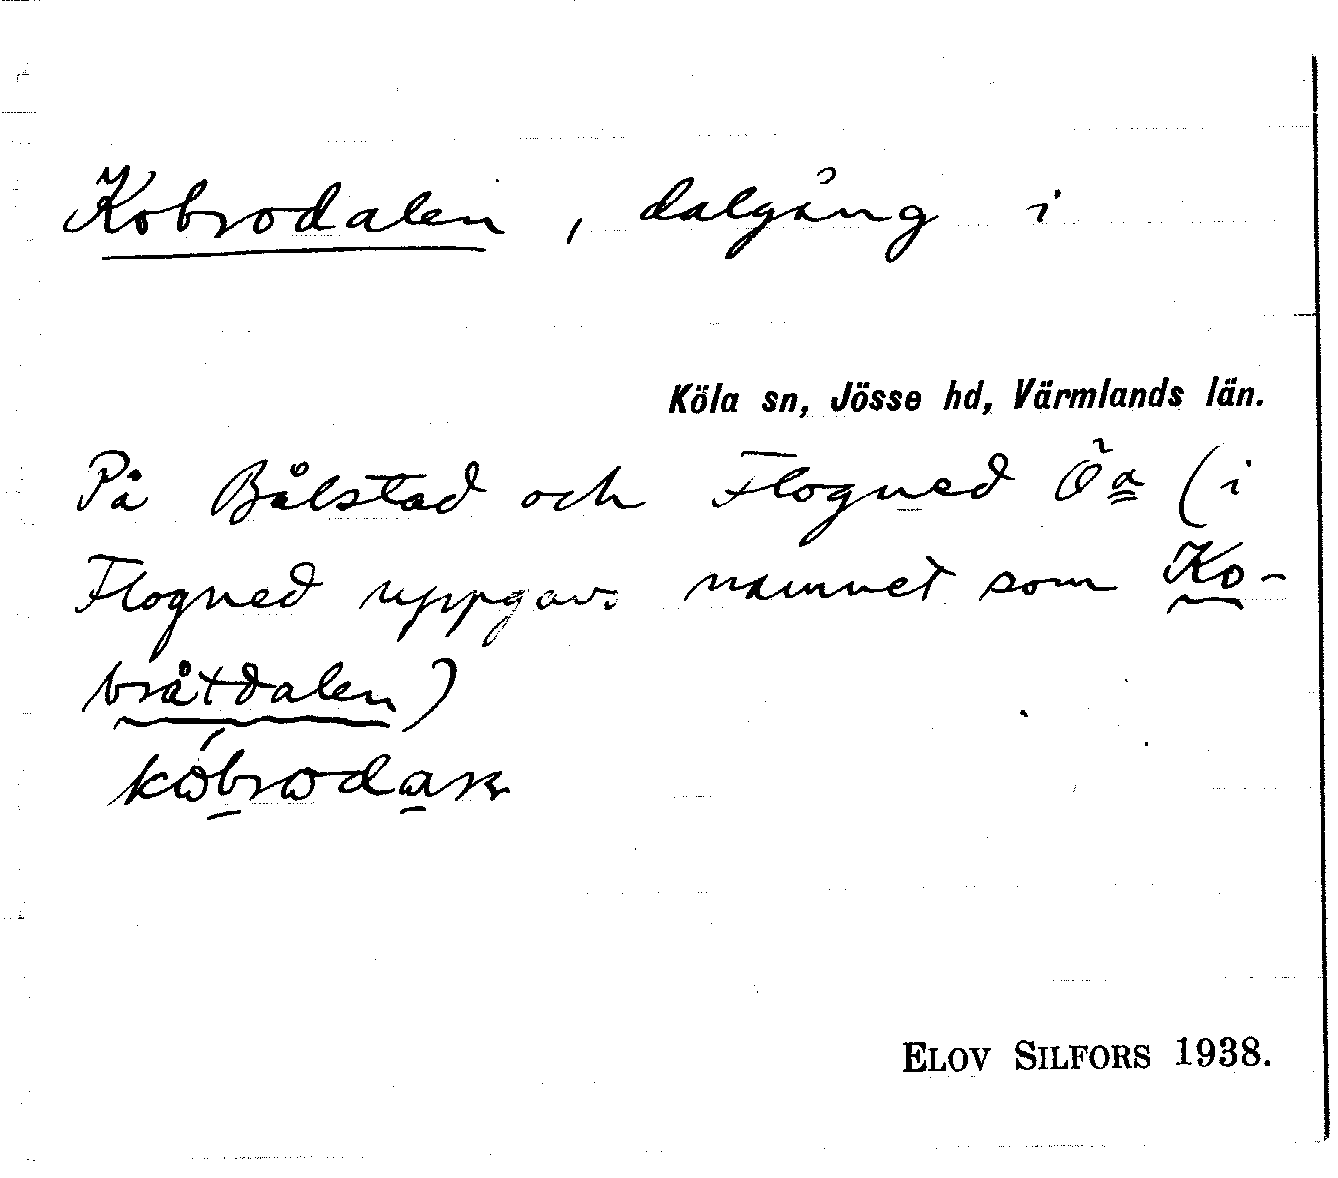 Kobrodalen, dalgång i
Köla sn, Jösse hd, Värmlands län.
På Bålstad och Flogned Öa (i
Flogned uppgavs namnet som Ko-
bråtdalen)
ELOV SILFORS 1938.